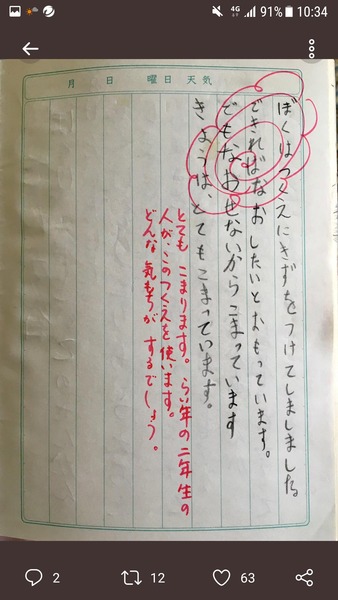 4G 91% 10:34
月 日 曜日 天気
ぼくはつくえにきずをつけてしましました
できればなおしたいとおもっています。
でもなおせないからこまっています
きょうは、とてもこまっています。
とても こまります。らい年の二年生の
人が、このつくえを使います。
どんな気もちがするでしょう。
2 12 63